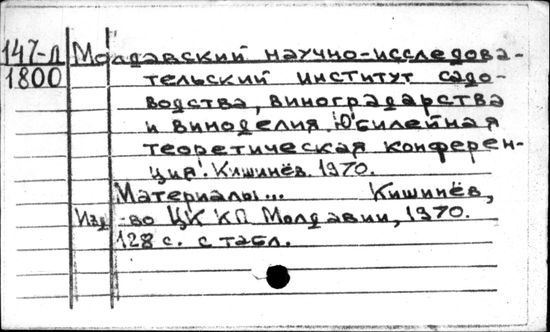 147-Д Молдавский научно-исследова-
1800 тельский институт садо-
водства, виноградарства
и виноделия. Юбилейная
теоретическая конферен-
ция. Кишинёв. 1970.
Материалы... Кишинёв,
Изд-во ЦК КП Молдавии, 1970.
128 с. с табл.